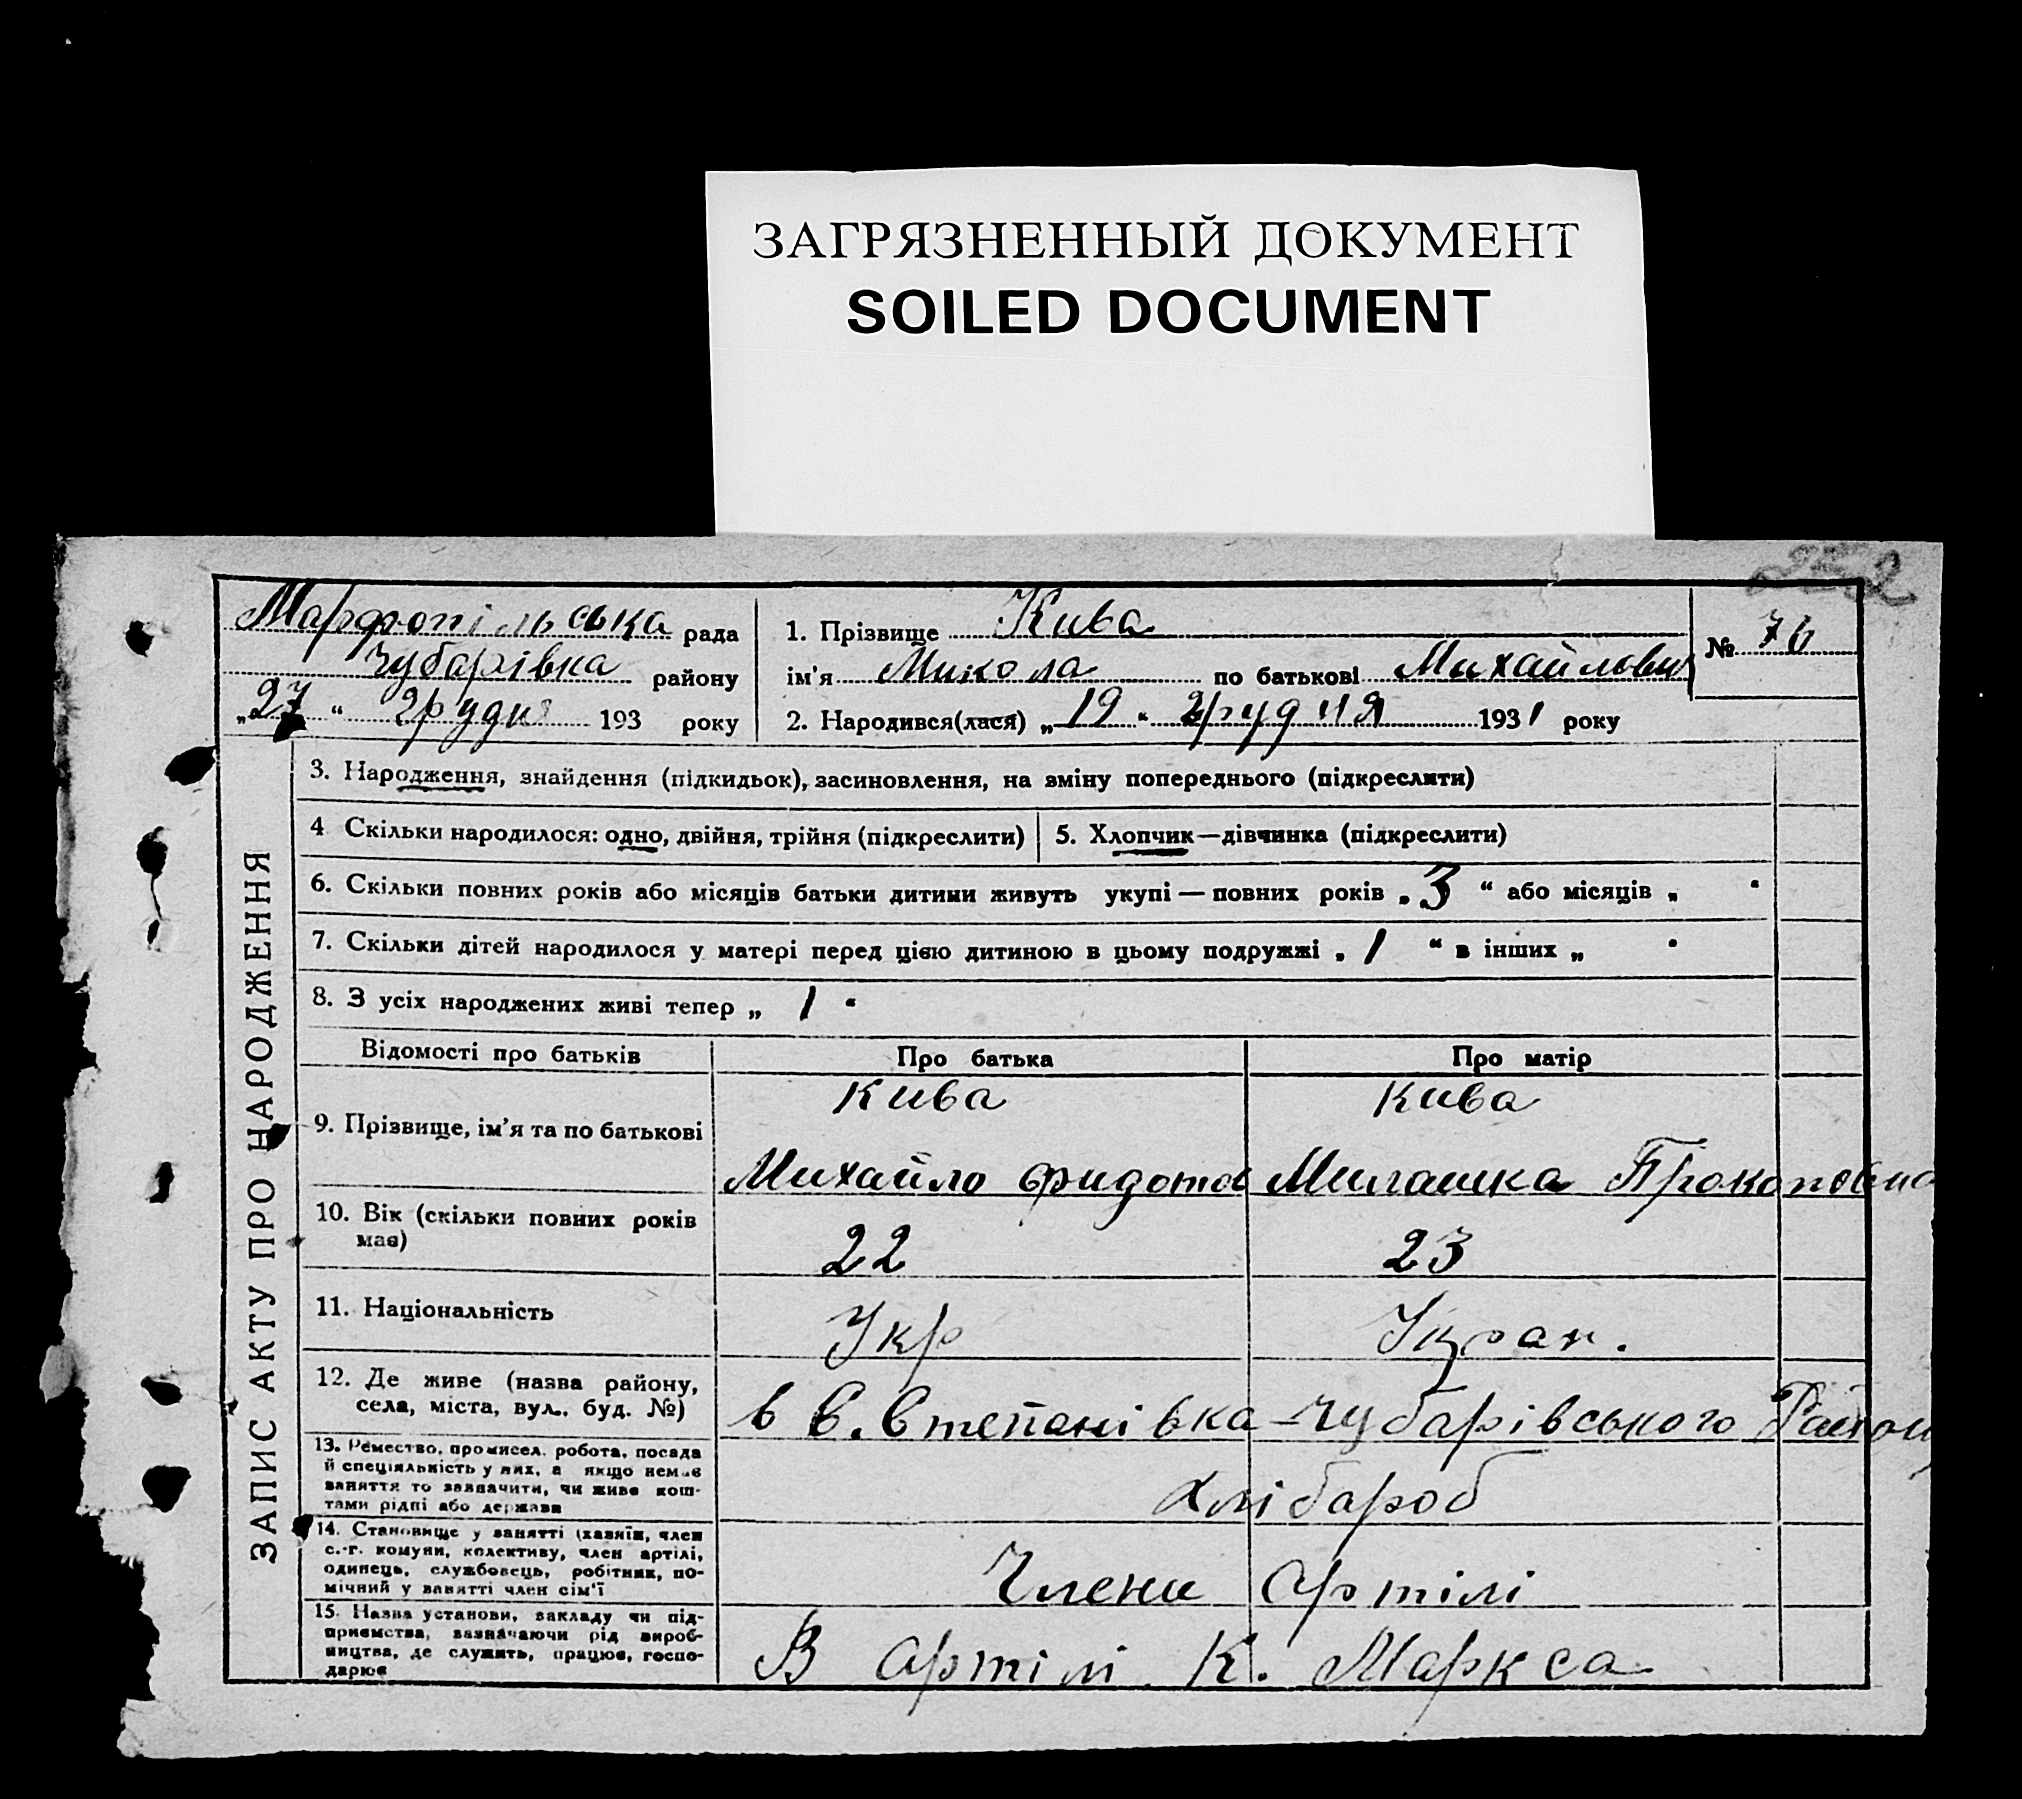 ЗАГРЯЗНЕННЫЙ ДОКУМЕНТ
SOILED DOCUMENT
Марфопільська рада
Чубарівка району
„27“ грудня 193 року
1. Прізвище Кива
ім'я Микола по батькові Михайлович
2. Народився(лася) „19“ грудня 1931 року
№ 76
ЗАПИС АКТУ ПРО НАРОДЖЕННЯ
3. Народження, знайдення (підкидьок), засиновлення, на зміну попереднього (підкреслити)
4 Скільки народилося: одно, двійня, трійня (підкреслити)
5. Хлопчик—дівчинка (підкреслити)
6. Скільки повних років або місяців батьки дитини живуть укупі — повних років „3“ або місяців „ “
7. Скільки дітей народилося у матері перед цією дитиною в цьому подружжі „1“ в інших „ “
8. З усіх народжених живі тепер „1“
Відомості про батьків Про батька Про матір
9. Прізвище, ім'я та по батькові
Кива Кива
Михайло Прокоповна
10. Вік (скільки повних років
має)
22 23
11. Національність
Укр Укран.
12. Де живе (назва району,
села, міста, вул., буд. №)
в С. Степанівка – Чубарівського Району
13. Ремество, промисел, робота, посада
й спеціяльність у них, а якщо немає
заняття то зазначити, чи живе кош-
тами рідні або держави
Хлібароб
14. Становище у занятті (хазяїн, член
с.-г. комуни, колективу, член артілі,
одинець, службовець, робітник, по-
мічний у занятті член сім'ї
Члени Артілі
15. Назва установи, закладу чи під-
приємства, зазначаючи рід вироб-
ництва, де служить, працює, госпо-
дарює
В Артілі К. Маркса